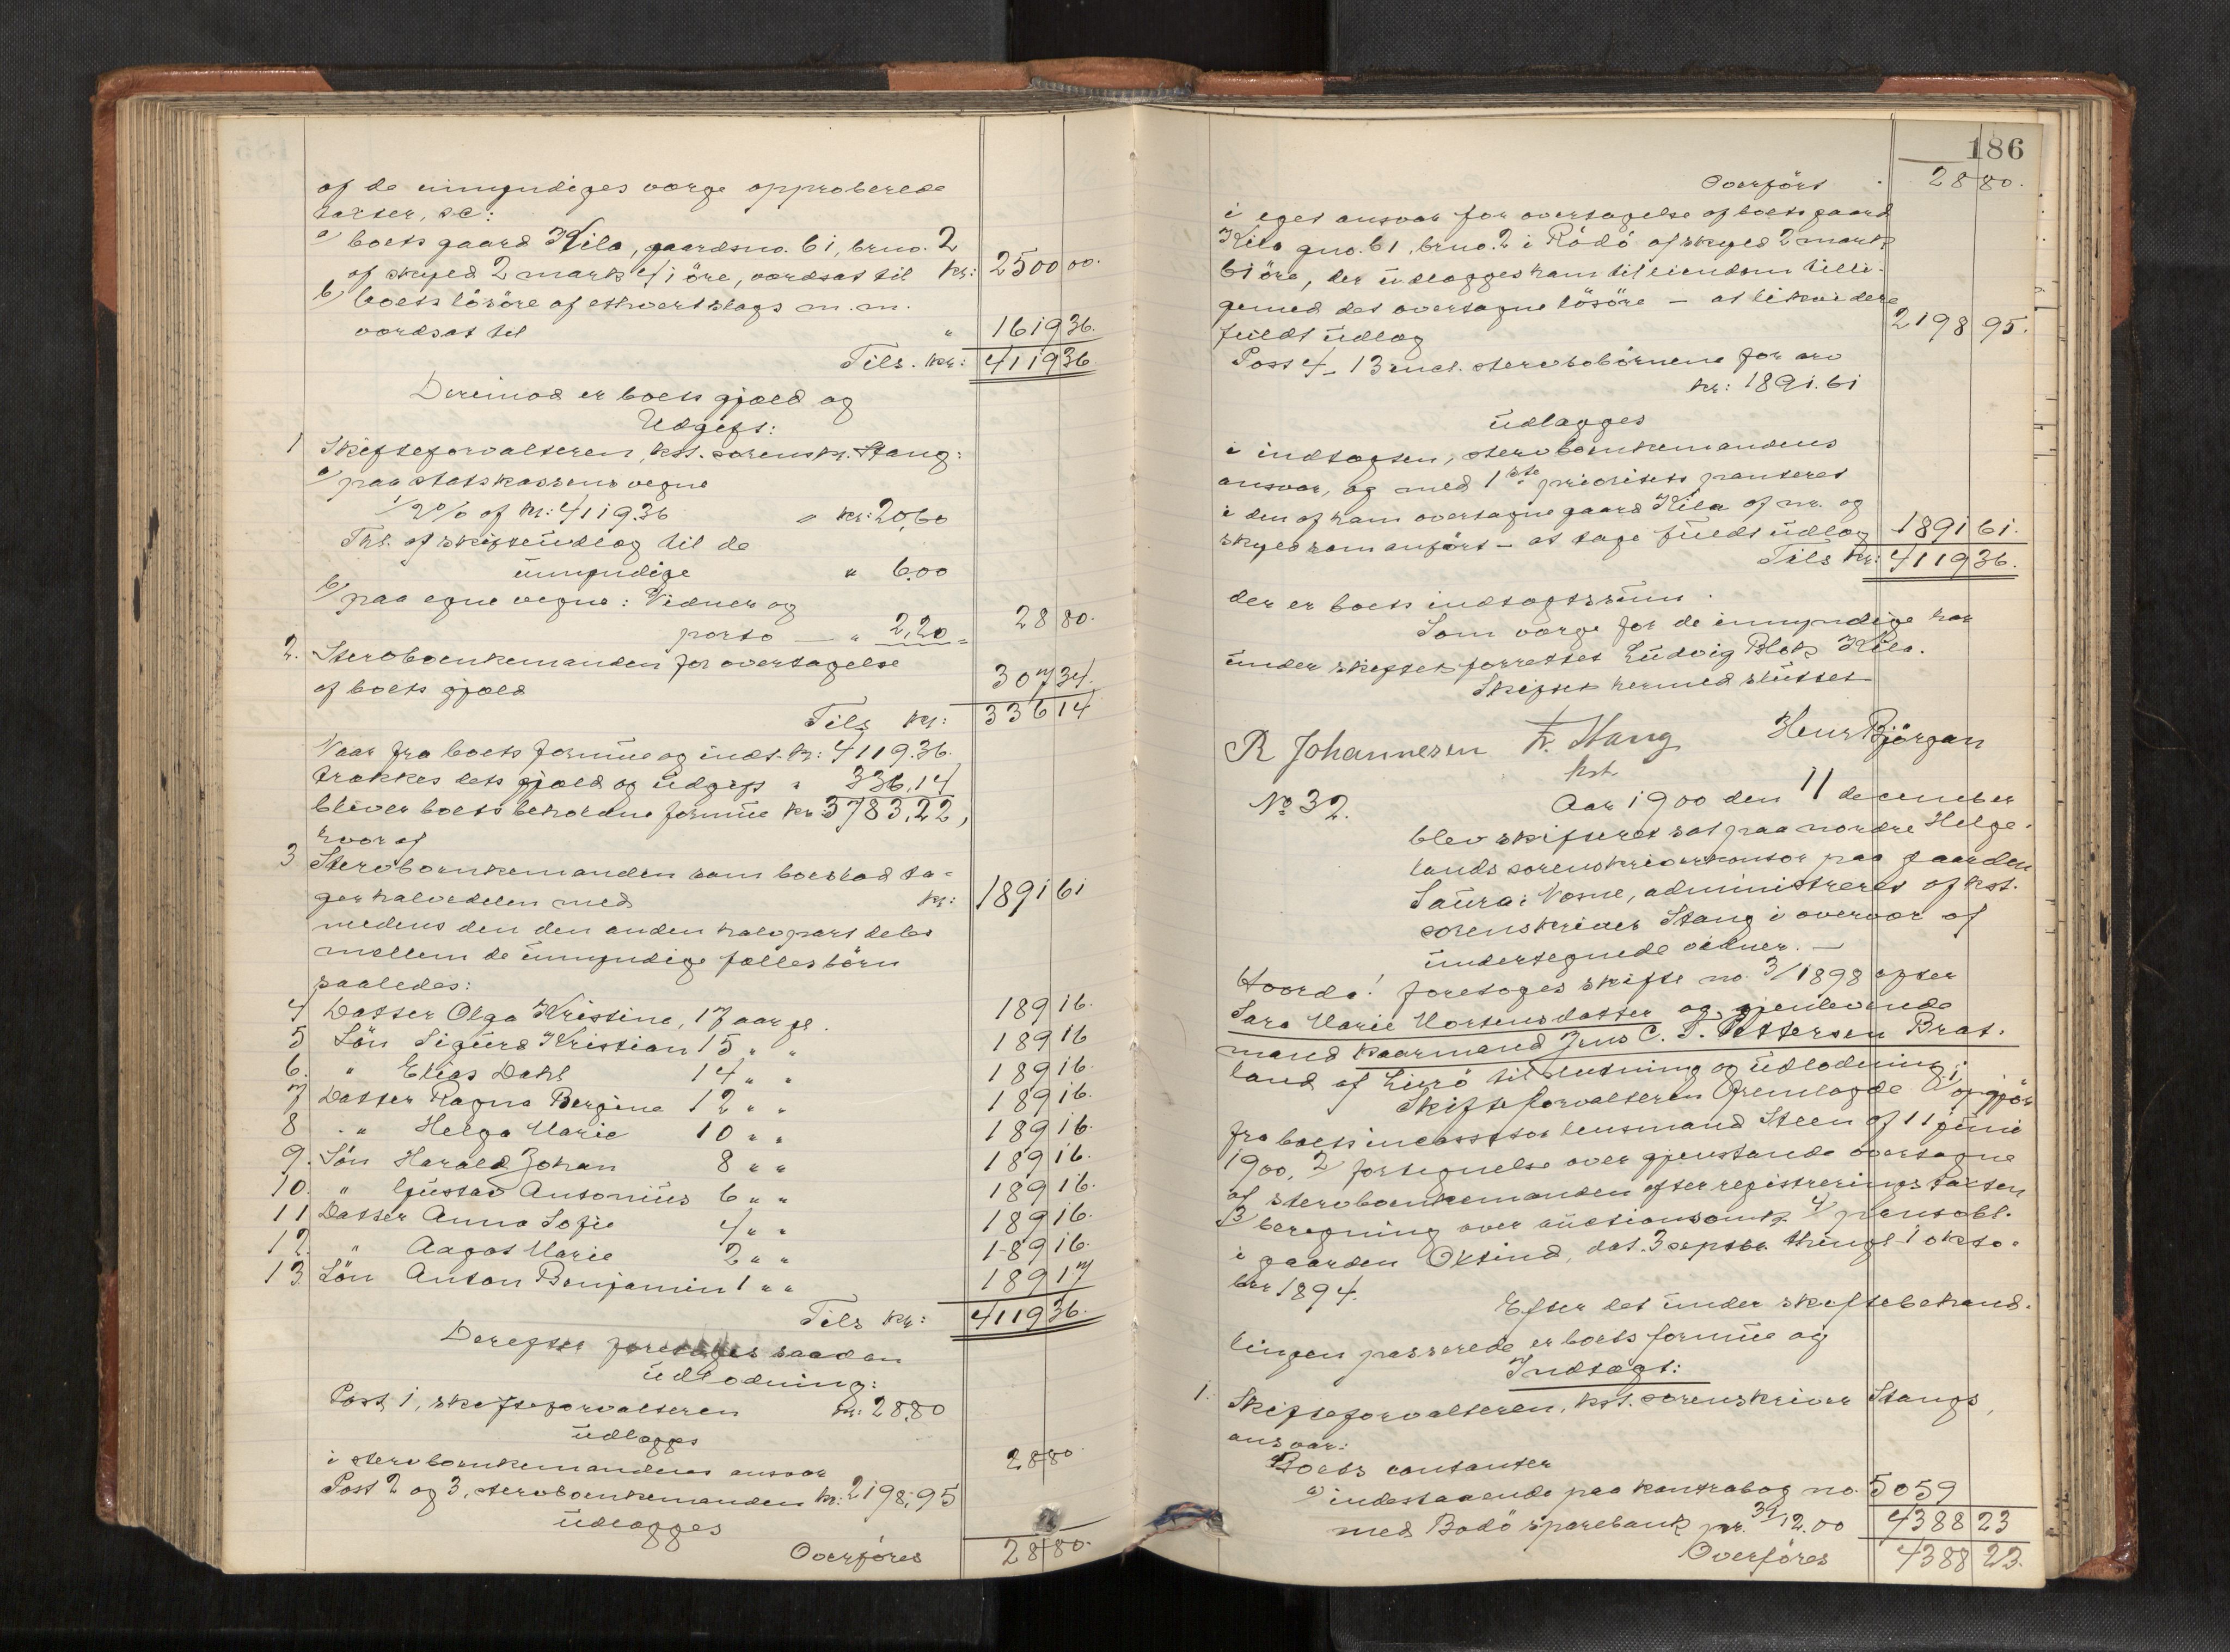 af de umyndiges værge approberede
taxter, sc:
a) boets gaard Kila, gaardsno. 61, brno. 2
af skyld 2 mark 41 öre, værdsat til kr: 2500 00.
b) boets lösöre af ethvertslags m. m.
værdsat til " 1619 36.
Tils. kr: 4119 36.
Derimod er boets gjæld og
Udgift:
1 Skifteforvalteren, kst. sorenskr. Stang:
a) paa statskassens vegne
1/2 % af kr: 4119.36 " kr: 20,60
Thl. af skifteudlæg til de
umyndige " 6.00
b) paa egne vegne: Vidner og
porto — " 2,20 = 28 80.
2. Stervboenkemanden for overtagelse
af boets gjæld 307 34.
Tils kr: 336 14
Naar fra boets formue og indt. kr: 4119.36.
trækkes dets gjæld og udgift " 336,14
bliver boets beholdne formue kr 3783,22,
hvoraf
3 Stervboenkemanden som boeslod ta-
ger halvedelen med kr: 1891 61
medens den den anden halvpart deles
mellem de umyndige fællesbörn
saaledes:
4 Datter Olga Kristine, 17 aar gl. 189 16.
5 Sön Sigurd Kristian 15 " " 189 16
6. " Elias Dahl 14 " " 189 16.
7 Datter Ragna Bergine 12 " " 189 16.
8 " Helga Marie 10 " " 189 16.
9. Sön Harald Johan 8 " " 189 16.
10. " Gustav Antonius 6 " " 189 16.
11 Datter Anna Sofie 4 " " 189 16.
12. " Aagot Marie 2 " " 189 16.
13 Sön Anton Benjamin 1 " " 189 17
Tils kr: 4119 36.
Derefter foretages saadan
udlodning:
Post 1, skifteforvalteren kr: 28,80
udlægges
i stervboenkemandens ansvar 28 80.
Post 2 og 3, stervboenkemanden kr: 2198,95
udlægges
Overföres 28 80.
186
Overfört 28 80.
i eget ansvar for overtagelse af boets gaard
Kila gno. 61, brno. 2 i Rödö af skyld 2 mark
61 öre, der udlægges ham til eiendom tilli-
gemed det overtagne lösöre — at likvidere
fuldt udlæg 2198 95.
Post 4 - 13 incl. stervbobörnene for arv
kr: 1891.61
udlægges
i indtægten, stervboenkemandens
ansvar, og med 1ste prioritets panteret
i den af ham overtagne gaard Kila af nr. og
skyld som anfört — at tage fuldt udlæg 1891 61.
Tils kr: 4119 36.
der er boets indtægtssum.
Som værge for de umyndige har
under skiftet forrettet Ludvig Blok Kila.
Skiftet hermed sluttet
R Johannesen F. Stang Henr Bjørgan
kst.
No 32. Aar 1900 den 11 december
blev skifteret sat paa nordre Helge-
lands sorenskriverkontor paa gaarden
Saura i Nesne, administreret af kst.
sorenskriver Stang i overvær af
undertegnede vidner. —
Hvorda: foretoges skifte no. 3/1898 efter
Sara Marie Mortensdatter og gjenlevende
mand kaarmand Jens C. T. Pettersen Brat-
land af Lurö til slutning og udlodning;
Skifteforvalteren fremlagde 1) opgjör
fra boets incassator lensmand Steen af 11 juni
1900, 2) fortegnelse over gjenstande overtagne
af stervboenkemanden efter registreringstaxten
3) beregning over auctionsomk. 4) pantobl.
i gaarden Oktind, dat. 3 septbr. thingl 1 okto-
ber 1894.
Efter det under skiftebehand-
lingen passerede er boets formue og
Indtægt:
1. Skifteforvalteren, kst. sorenskriver Stangs,
ansvar:
Boets contanter
a) indestaaende paa kontrabog no. 5059
med Bodö sparebank pr. 31/12.00 4388 23
Overföres 4388 23.